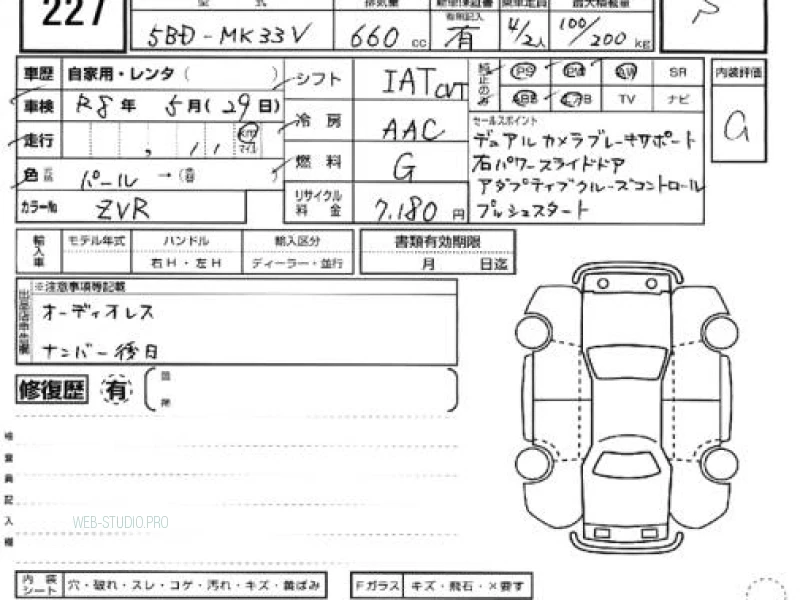 227
型式
排気量
新車保証書
乗車定員
最大積載量
5BD-MK33V
660 cc
有無記入
有
4/2人
100/200 kg
車歴 自家用・レンタ( )
シフト IAT CVT
純正のみ PS PW AW SR
ABS エアB TV ナビ
内装評価
車検 R8年 5月(29日)
冷房 AAC
セールスポイント
デュアルカメラブレーキサポート
走行 , 11 km マイル
右パワースライドドア
燃料 G
アダプティブクルーズコントロール
色 パール →( )
プッシュスタート
カラーNo ZVR
リサイクル料金 7,180 円
輸入車 モデル年式 ハンドル 輸入区分
右H・左H ディーラー・並行
書類有効期限
月 日迄
※注意事項等記載
オーディオレス
ナンバー後日
修復歴 有
検査員記入欄
WEB-STUDIO.PRO
内装シート 穴・破れ・スレ・コゲ・汚れ・キズ・黄ばみ
Fガラス キズ・飛石・×要す